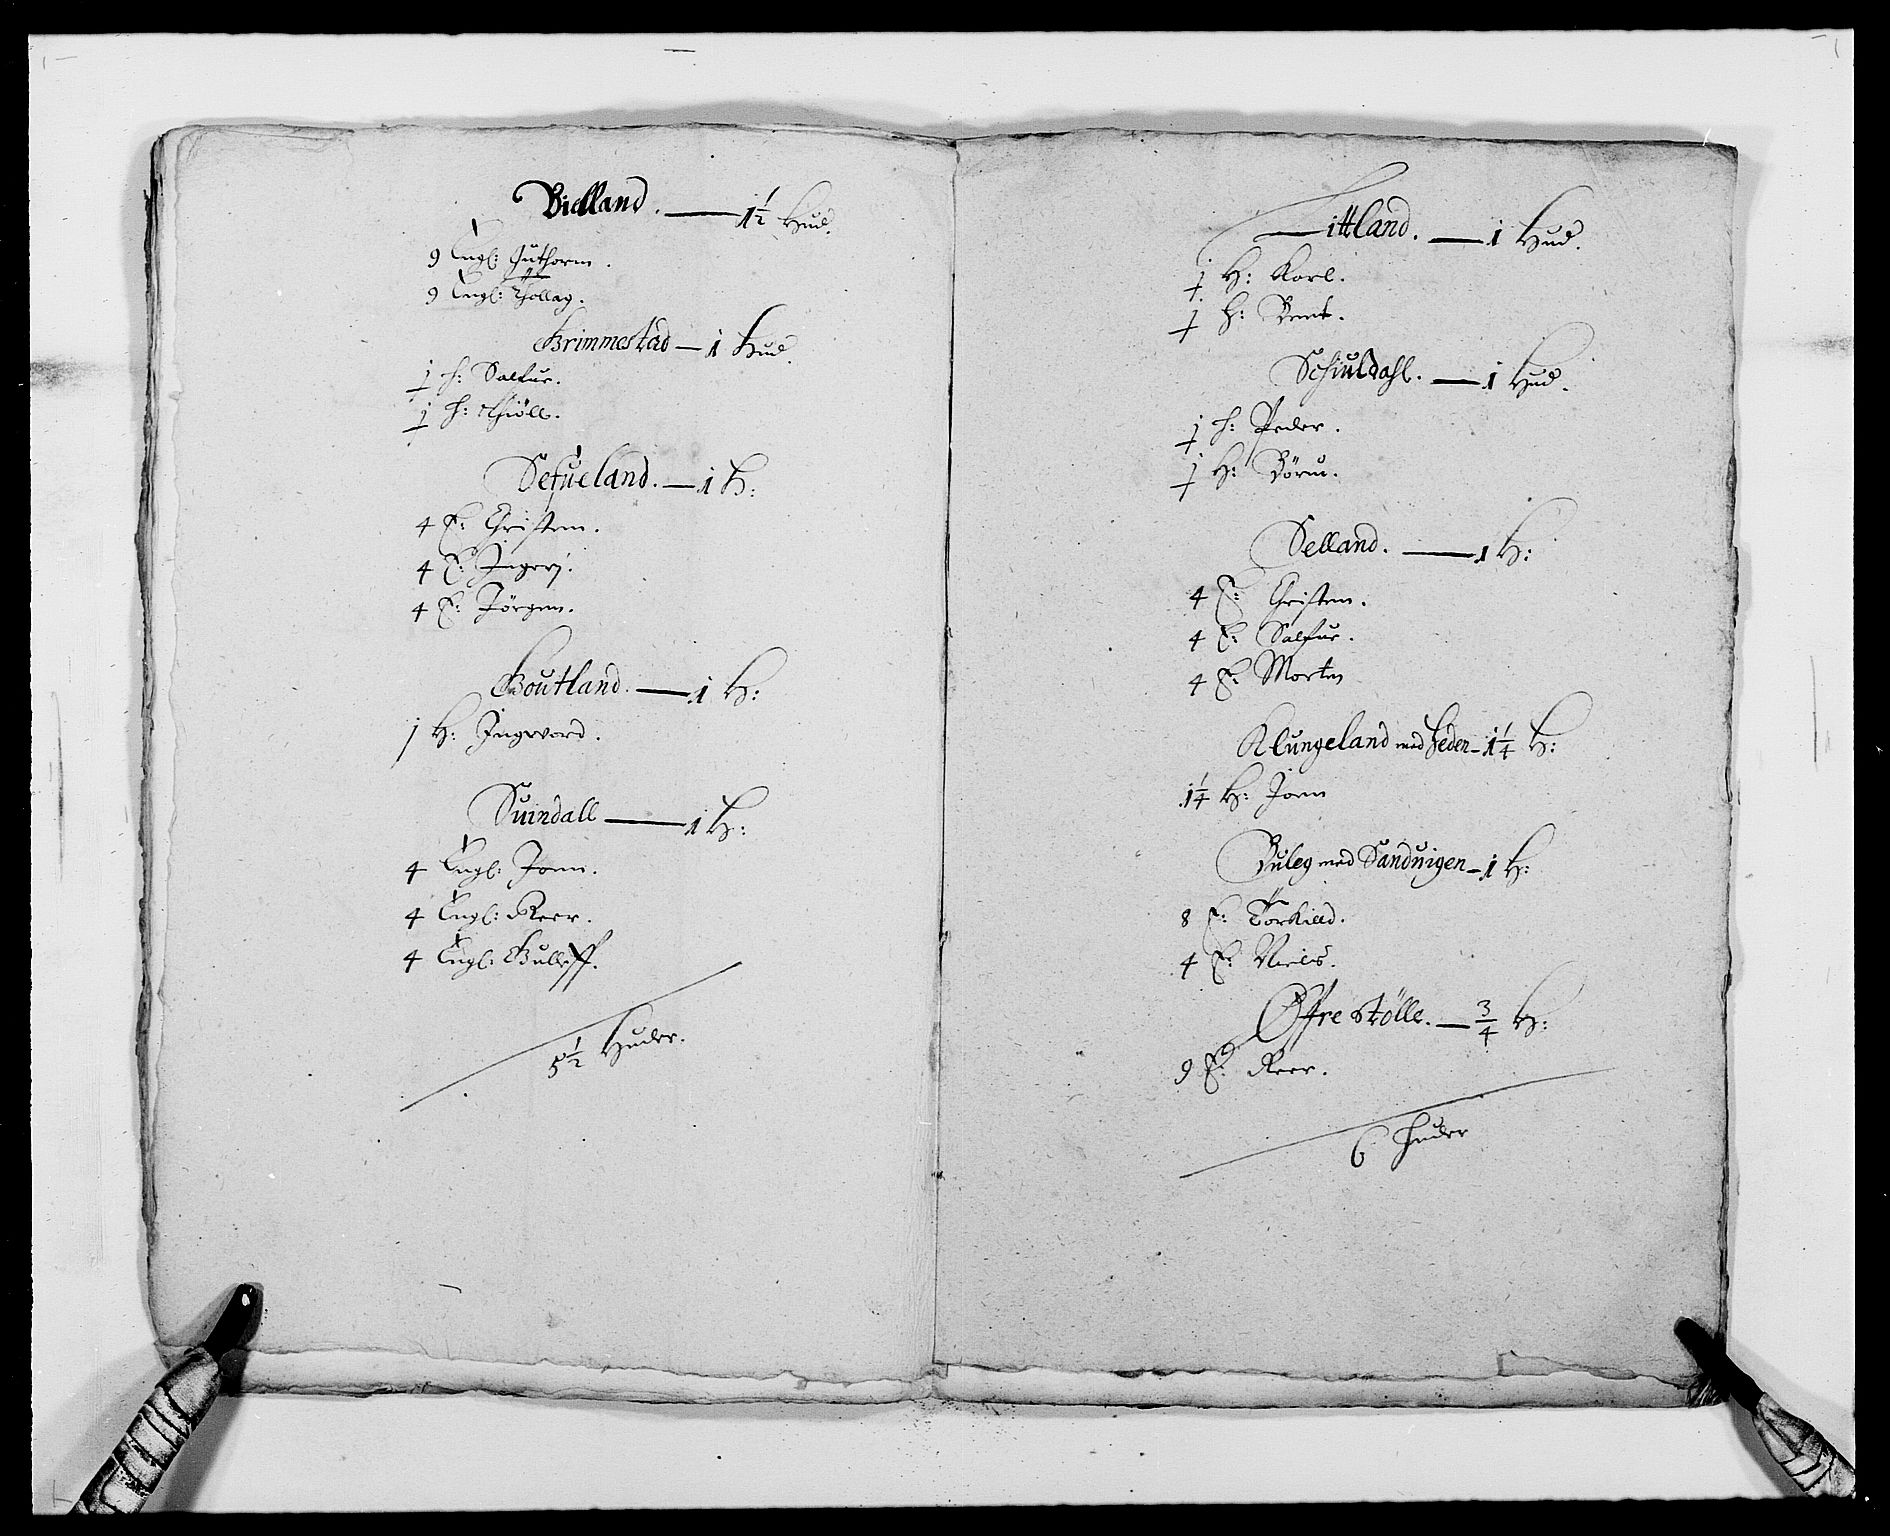 Bielland. — 1½ Hud.
9 Engl: Guthorm.
9 Engl: Tollag.
Grimmestad — 1 Hud.
½ H: Salfue.
½ H: Thiöll.
Sefueland. — 1 H:
4 E: Christen.
4 E: Jngerj.
4 E: Jörgen.
Goutland. — 1 H:
1 H: Jngvord.
Suindall — 1 H:
4 Engl: Joen.
4 Engl: Reer.
4 Engl: Gulleff.
5½ Huder.
Littland. — 1 Hud.
½ H: Korl.
½ H: Bent.
Schiuldahl. — 1 Hud.
½ H: Peder.
½ H: Börru.
Selland. — 1 H:
4 E: Christen.
4 E: Salfue.
4 E: Morten
Klungeland med Heden — 1¼ H:
1¼ H: Joen
Buleg med Sanduigen — 1 H:
8 E: Torkiild.
4 E: Niels.
Øffre Stölle. — ¾ H:
9 E: Reer.
6 Huder